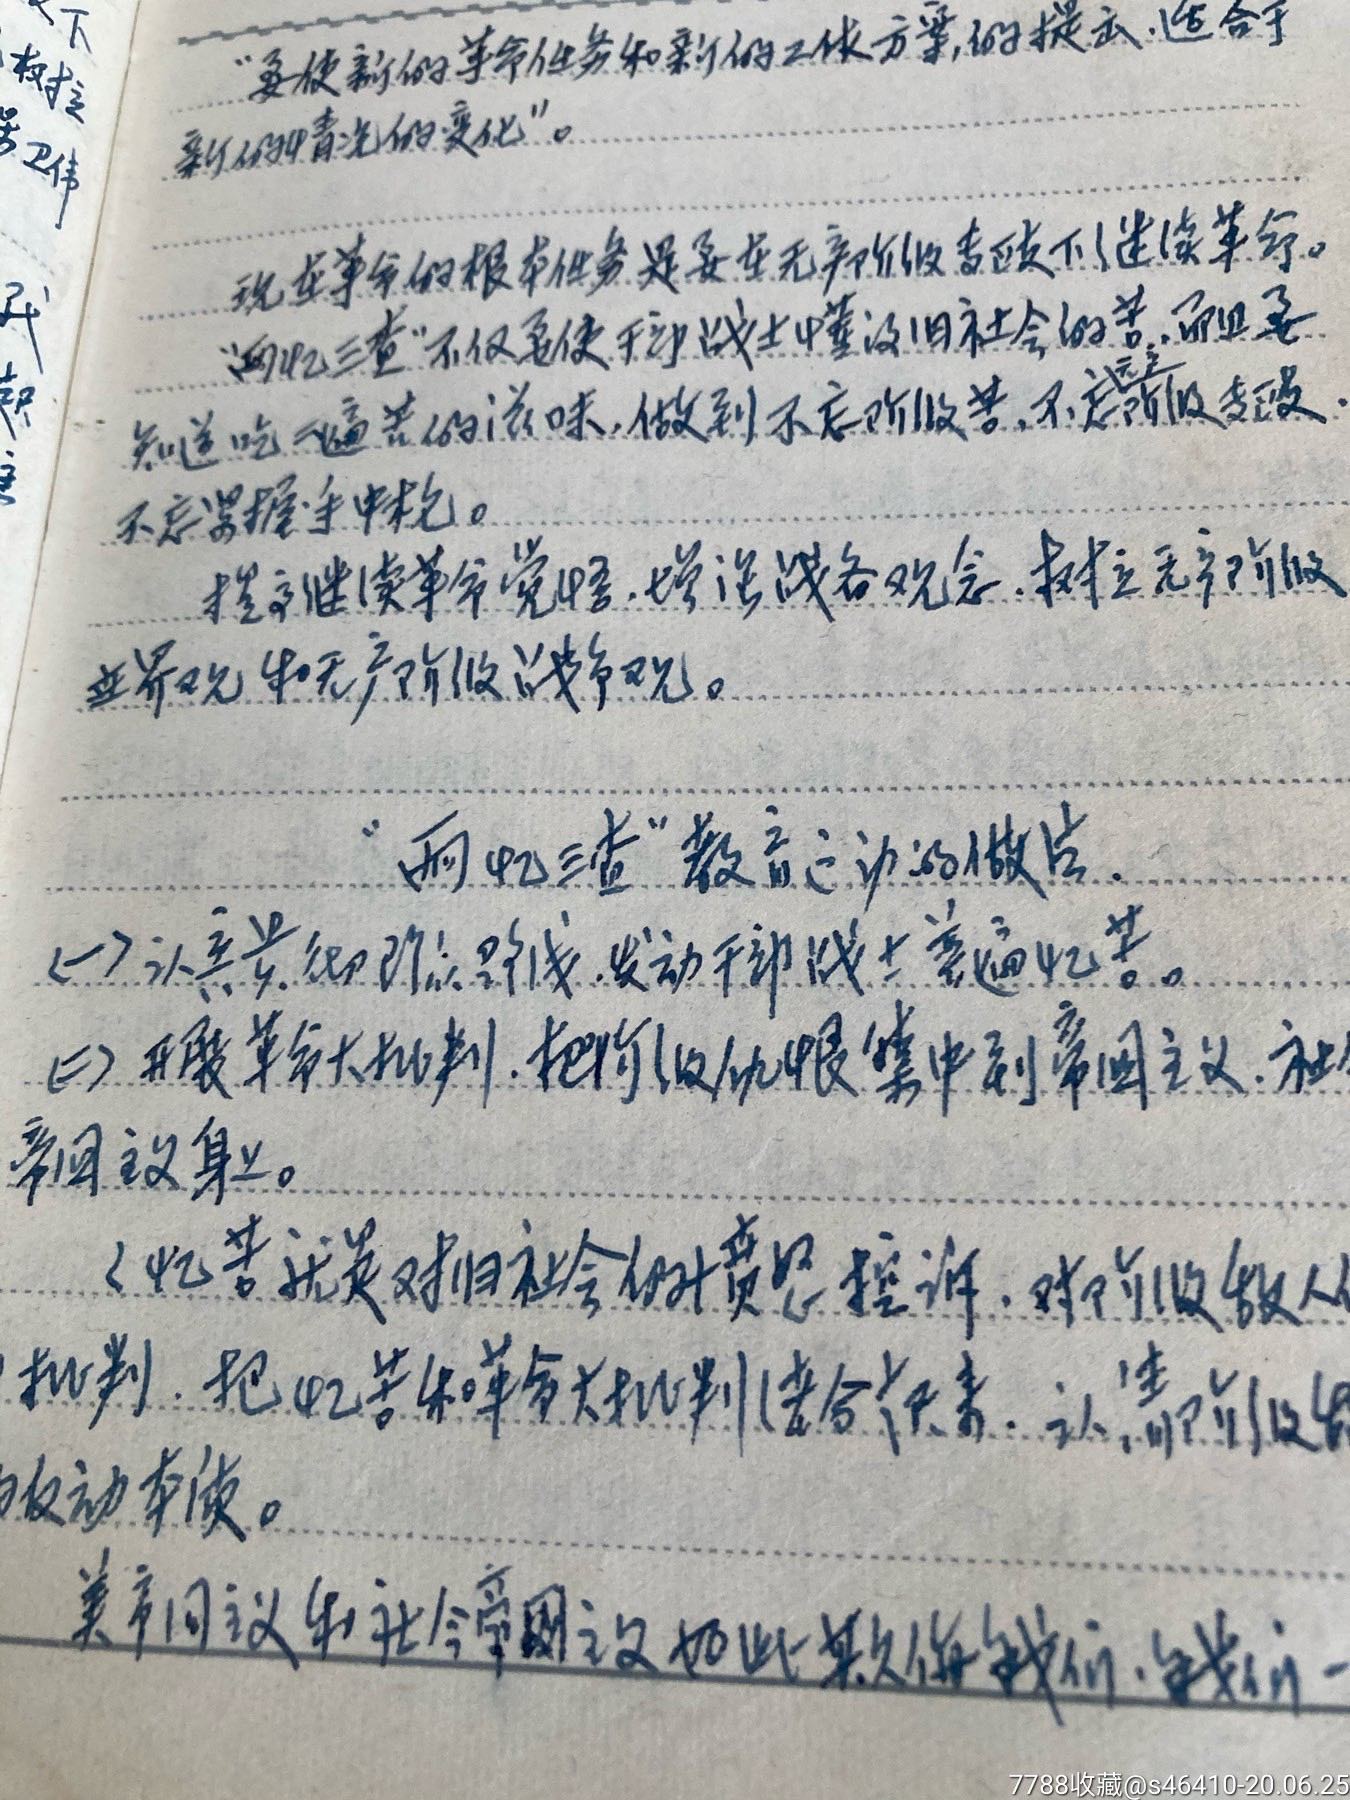 “要使新的革命任务和新的工作方案，的提出，适合于
新的情况的变化”。
现在革命的根本任务是要在无产阶级专政下继续革命。
两忆三查”不仅要使干部战士懂没旧社会的苦，而且要
知道吃二遍苦的滋味，做到不忘阶级苦，不忘无产阶级专政，
不忘掌握手中枪。
提高继续革命觉悟，增强战备观念，树立无产阶级
世界观和无产阶级战争观。
“两忆三查”教育运动的做法.
（一）认真贯彻阶级路线，发动干部战士普遍忆苦。
（二）开展革命大批判，把阶级仇恨集中到帝国主义，社会
帝国主义身上。
（忆苦就是对旧社会的愤怒控诉，对阶级敌人的
批判，把忆苦和革命大批判结合起来，认清阶级敌
的反动本质。
美帝国主义和社会帝国主义如此欺侮我们，我们一
下
树立
卫伟
7788收藏@s46410-20.06.25